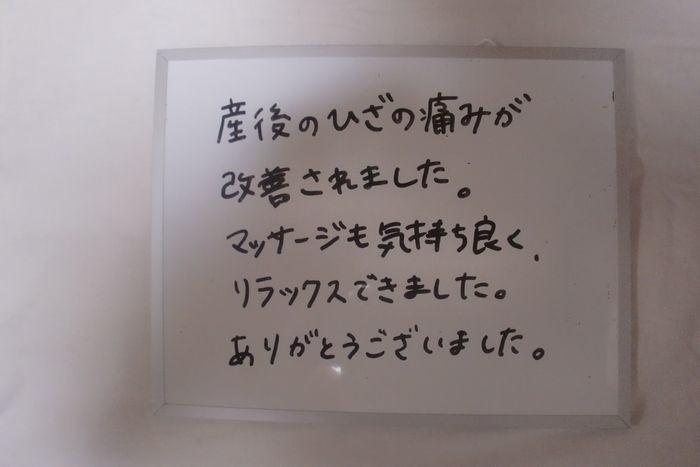 産後のひざの痛みが
改善されました。
マッサージも気持ち良く、
リラックスできました。
ありがとうございました。